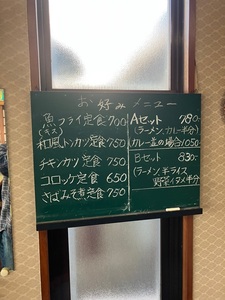 お好みメニュー
魚フライ定食 700
(キス)
和風トンカツ定食 750
チキンカツ定食 750
コロッケ定食 650
さばみそ煮定食 750
Aセット 780-
(ラーメン、カレー半分)
カレー並の場合 1050-
Bセット 830-
(ラーメン 半ライス
野菜イタメ半分